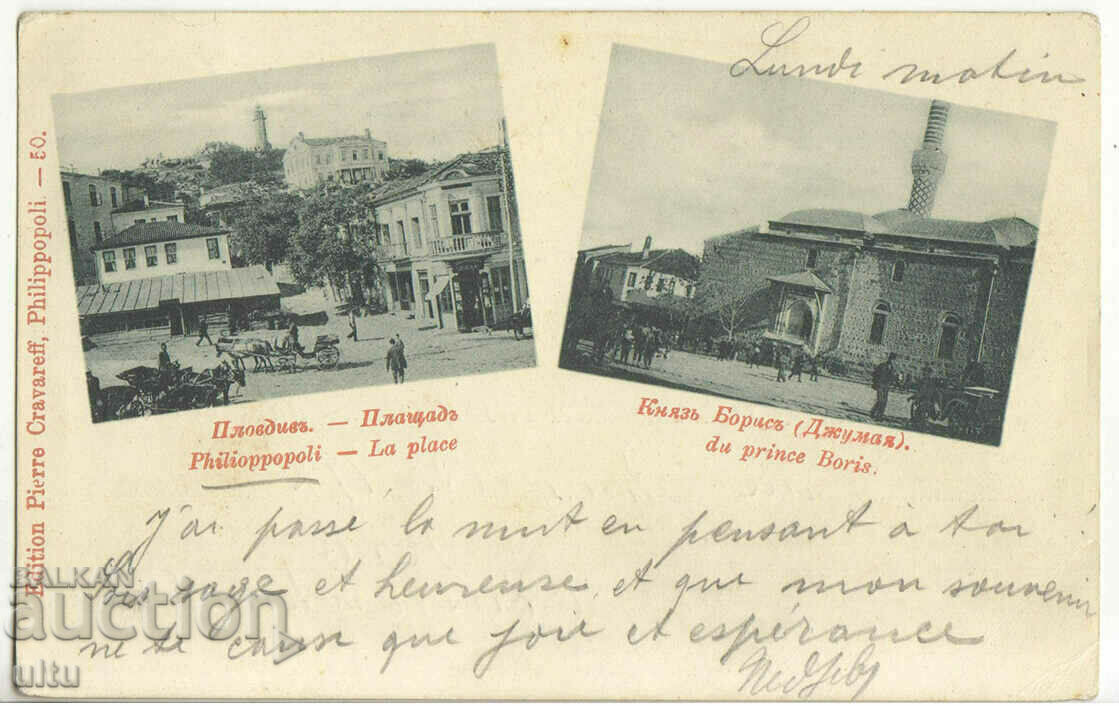 Lundi matin
Edition Pierre Cravareff, Philippopoli. — 50.
Пловдивъ. — Площадъ
Philioppopoli — La place
Князь Борисъ (Джумая).
du prince Boris.
J'ai passé la nuit en pensant à toi !
Sois sage et heureuse, et que mon souvenir
ne te cause que joie et espérance
BALKAN
auction
ultu